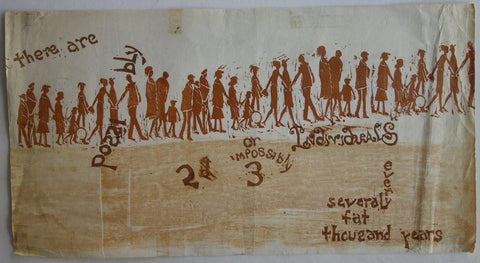 there are
possibly
2½
or
impossibly
3
Individuals
every
several
fat
thousand years